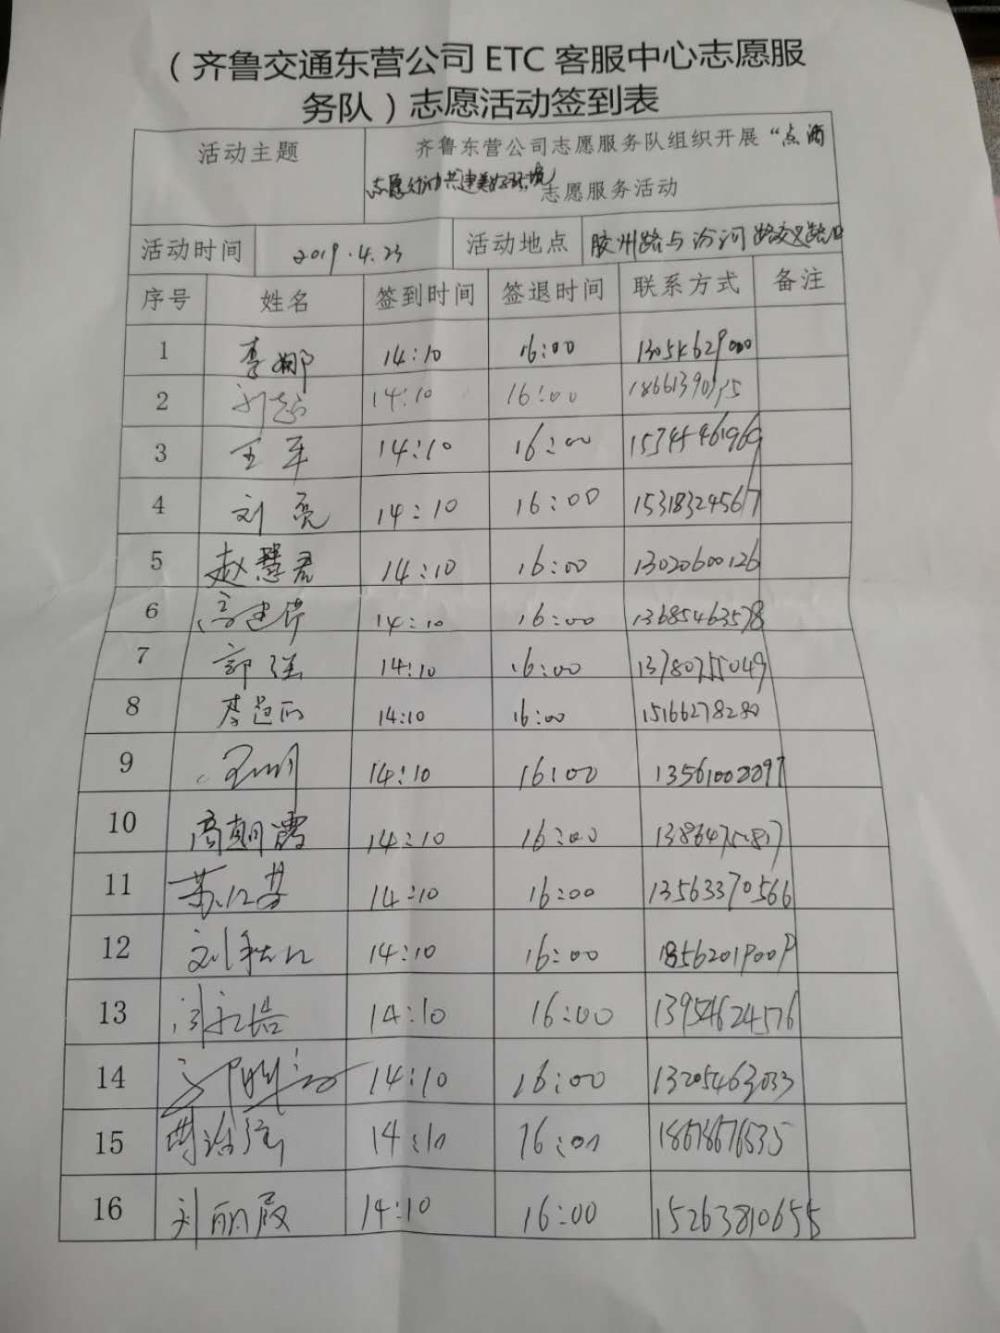 （齐鲁交通东营公司 ETC 客服中心志愿服
务队）志愿活动签到表
活动主题 齐鲁东营公司志愿服务队组织开展“点滴
志愿行动 共建美好环境 志愿服务活动
活动时间 2019.4.23 活动地点 胶州路与汾河路交叉路口
序号 姓名 签到时间 签退时间 联系方式 备注
1 李娜 14:10 16:00 13054629000
2 14:10 16:00
3 王军 14:10 16:00
4 刘亮 14:10 16:00 15318324567
5 赵慧君 14:10 16:00 13020600126
6 14:10 16:00 13685463578
7 郭强 14:10 16:00 13780755049
8 14:10 16:00 15166278280
9 14:10 16:00
10 高朝霞 14:10 16:00
11 14:10 16:00 13563370566
12 14:10 16:00
13 14:10 16:00 13954624576
14 14:10 16:00 13205463033
15 14:10 16:00 18678676535
16 刘丽霞 14:10 16:00 15263810655